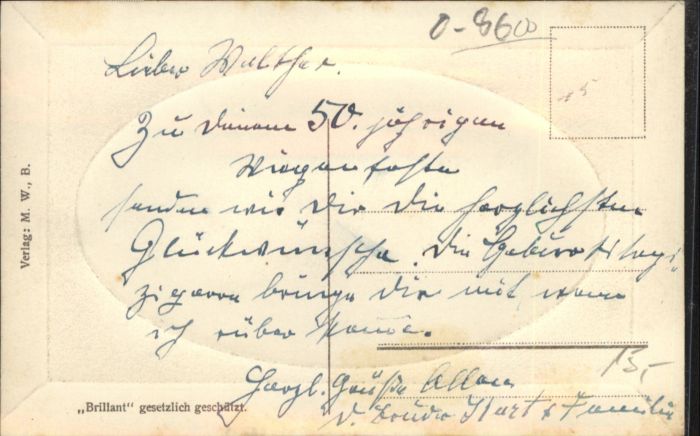 0-8600
Lieber Walther.
+5
Zu deinem 50. jährigen
Wiegenfeste
senden wir Dir die herzlichsten
Glückwünsche. Die Geburtstags-
zigarre bringe Dir mit, wenn
ich rüber komme.
13,-
Herzl. Grüße Allen
v. Bruder Kurt & Familie
Verlag: M. W., B.
„Brillant“ gesetzlich geschützt.